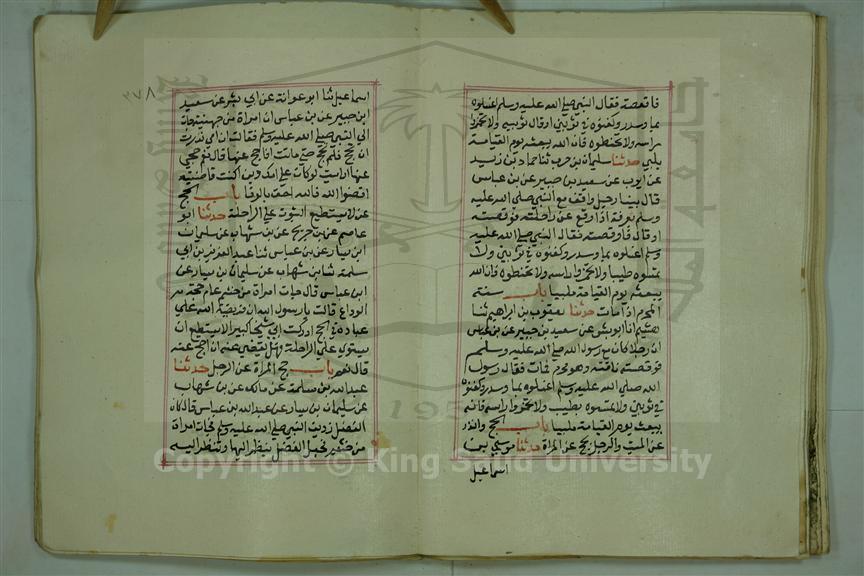 فاقعصته فقال النبي صلى الله عليه وسلم اغسلوه
بماء وسدر وكفنوه في ثوبين او قال ثوبيه ولا تخمروا
راسه ولا تحنطوه فان الله يبعثه يوم القيامة
يلبي حدثنا سليمان بن حرب ثنا حماد بن زيد
عن ايوب عن سعيد بن جبير عن بن عباس
قال بينا رجل واقف مع النبي صلى الله عليه
وسلم بعرفة اذ وقع عن راحلته فوقصته
او قال فاوقصته فقال النبي صلى الله عليه
وسلم اغسلوه بماء وسدر وكفنوه في ثوبين ولا
تمسوه طيبا ولا تخمروا راسه ولا تحنطوه فان الله
يبعثه يوم القيامة ملبيا باب سنة
المحرم اذا مات حدثنا يعقوب بن ابراهيم ثنا
هشيم انا ابو بشر عن سعيد بن جبير عن بن عباس
ان رجلا كان مع رسول الله صلى الله عليه وسلم
فوقصته ناقته وهو محرم فمات فقال رسول
الله صلى الله عليه وسلم اغسلوه بماء وسدر وكفنوه
في ثوبين ولا تمسوه بطيب ولا تخمروا راسه فانه
يبعث يوم القيامة ملبيا باب الحج والنذر
عن الميت والرجل يحج عن المراة حدثنا موسى بن
اسماعيل
٣٧٨
اسماعيل ثنا ابو عوانة عن ابي بشر عن سعيد
ابن جبير عن بن عباس ان امراة من جهينة جات
الى النبي صلى الله عليه وسلم فقالت ان امي نذرت
ان تحج فلم تحج حتى ماتت افاحج عنها قال نعم حجي
عنها ارايت لو كان على امك دين اكنت قاضيته
اقضوا الله فالله احق بالوفا باب الحج
عن لا يستطيع الثبوت على الراحلة حدثنا ابو
عاصم عن بن جريج عن بن شهاب عن سليمان
ابن يسار عن بن عباس ثنا عبد العزيز بن ابي
سلمة ثنا بن شهاب عن سليمان بن يسار عن
ابن عباس قال جات امراة من خثعم عام حجة
الوداع قالت يا رسول الله ان فريضة الله على
عباده في الحج ادركت ابي شيخا كبيرا لا يستطيع ان
يستوي على الراحلة فهل يقضي عنه ان احج عنه
قال نعم باب حج المراة عن الرجل حدثنا
عبد الله بن مسلمة عن مالك عن بن شهاب
عن سليمان بن يسار عن عبد الله بن عباس قال كان
الفضل رديف النبي صلى الله عليه وسلم فجات امراة
من خثعم فجعل الفضل ينظر اليها وتنظر اليه
Copyright © King Saud University